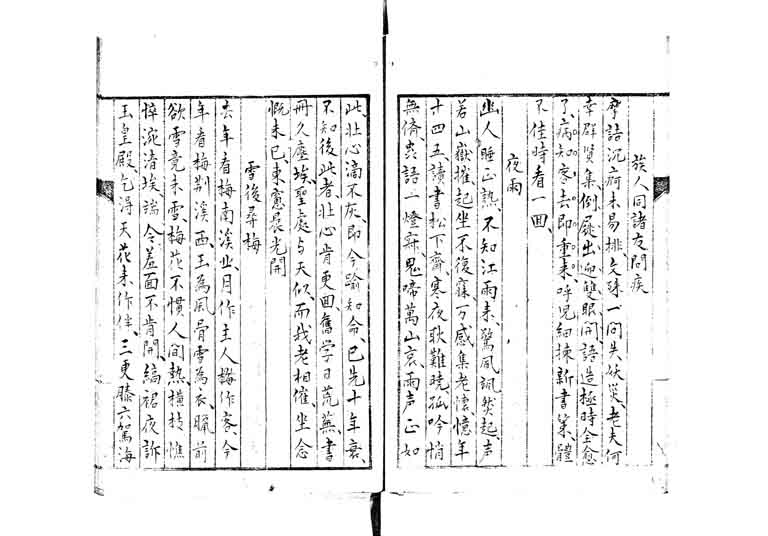 族人同諸友問疾
摩詰沉痾未易排文殊一問失妖災老夫何
幸群賢集倒屣出迎雙眼開語造極時全愈
了病知客去即重来呼兒細揀新書策體
不佳時看一回
夜雨
幽人睡正熟不知江雨来驚風颯然起声
若山嶽摧起坐不復寐万感集老懷憶年
十四五讀書松下齋寒夜耿難曉孤吟悄
無儕虫語一燈寂鬼啼萬山哀雨声正如
此壮心滴不灰即今踰知命已先十年衰
不知後此者壮心肯更囬舊学日荒蕪書
冊久塵埃聖處与天似而我老相催坐念
慨未已東窻晨光開
雪後尋梅
去年看梅南溪北月作主人梅作客今
年看梅荆溪西玉為風骨雪為衣臘前
欲雪竟未雪梅花不慣人間熱横枝憔
悴涴渚埃端令羞面不肯開縞裙夜訴
玉皇殿乞得天花来作伴三更滕六駕海